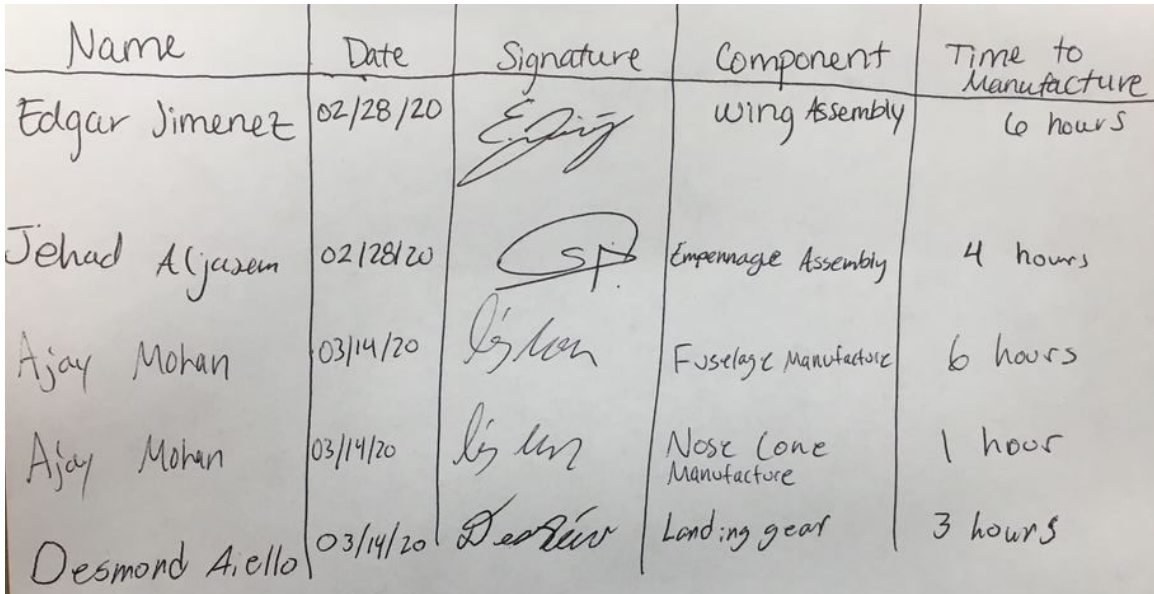 Name Date Signature Component Time to
Manufacture
Edgar Jimenez 02/28/20 Wing Assembly 6 hours
Jehad Aljasem 02/28/20 Empennage Assembly 4 hours
Ajay Mohan 03/14/20 Fuselage Manufacture 6 hours
Ajay Mohan 03/14/20 Nose Cone 1 hour
Manufacture
Desmond Aiello 03/14/20 Landing gear 3 hours